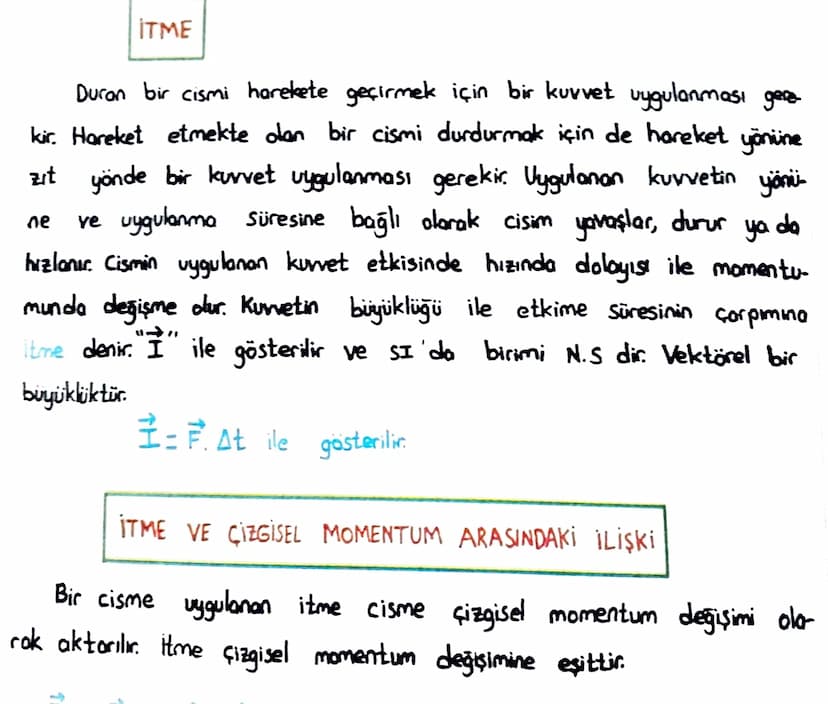 İTME
Duran bir cismi harekete geçirmek için bir kuvvet uygulanması gere-
kir. Hareket etmekte olan bir cismi durdurmak için de hareket yönüne
zıt yönde bir kuvvet uygulanması gerekir. Uygulanan kuvvetin yönü-
ne ve uygulanma süresine bağlı olarak cisim yavaşlar, durur ya da
hızlanır. Cismin uygulanan kuvvet etkisinde hızında dolayısı ile momentu-
munda değişme olur. Kuvvetin büyüklüğü ile etkime süresinin çarpımına
itme denir. "I⃗" ile gösterilir ve SI'da birimi N.S dir. Vektörel bir
büyüklüktür.
I⃗ = F⃗. Δt ile gösterilir.
İTME VE ÇİZGİSEL MOMENTUM ARASINDAKİ İLİŞKİ
Bir cisme uygulanan itme cisme çizgisel momentum değişimi ola-
rak aktarılır. İtme çizgisel momentum değişimine eşittir.